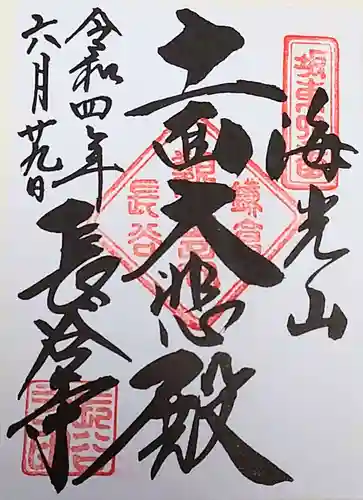 海光山
十一面大悲殿
長谷寺
令和四年
六月廿九日
鎌倉
長谷